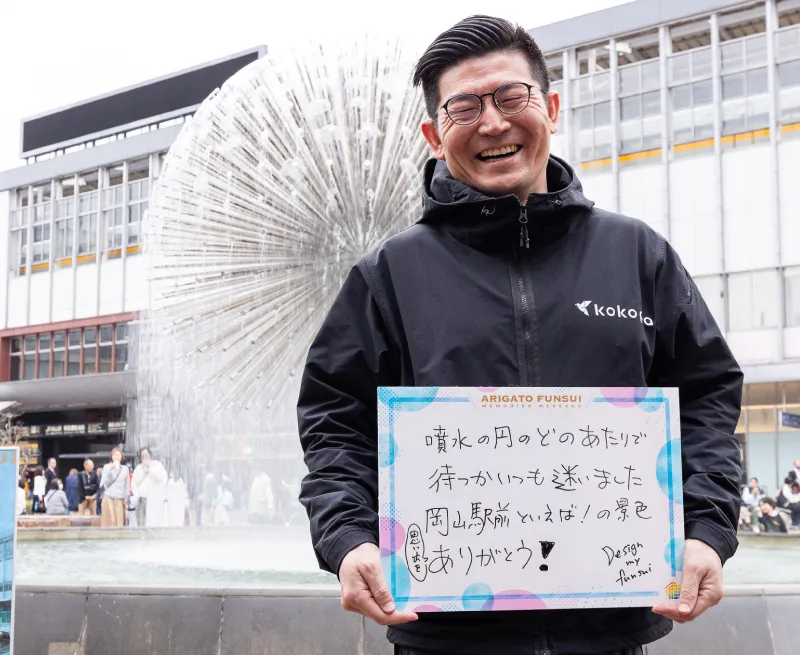 kokoro
ARIGATO FUNSUI
MEMORIES MESSAGE
噴水の円のどのあたりで
待つかいつも迷いました
岡山駅前といえば!の景色
思い出を
ありがとう!
Design
my
funsui